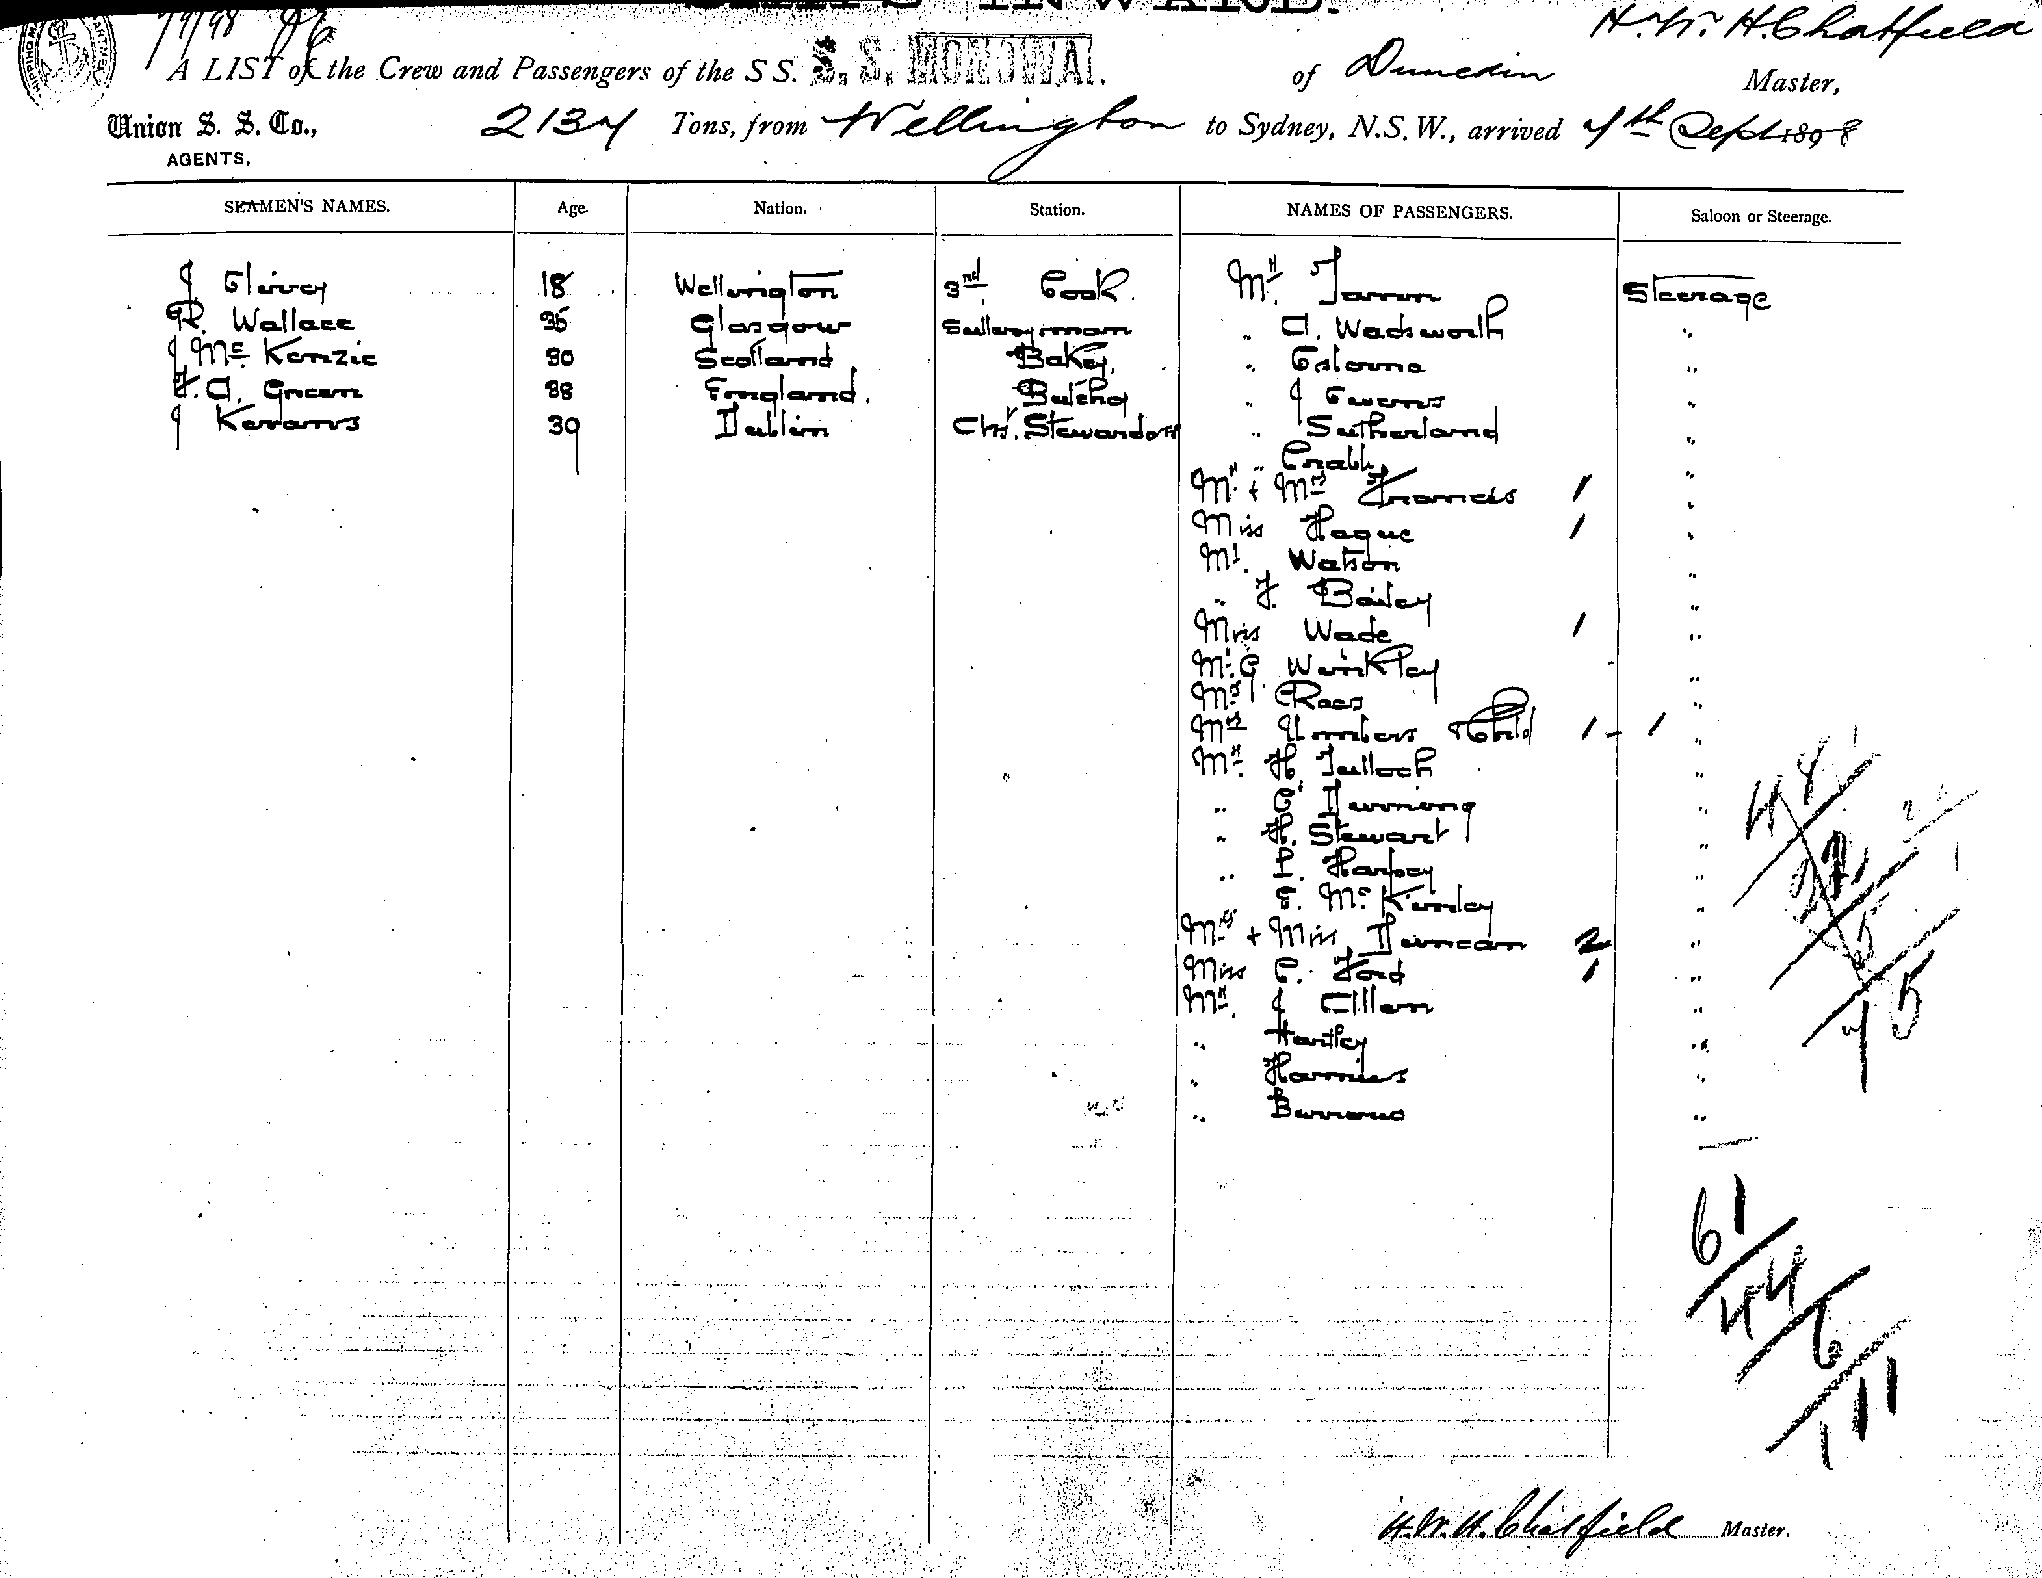 SHIPS INWARD.
7/9/98
H. W. H. Chatfield
A LIST of the Crew and Passengers of the SS. S. S. MONOWAI. of Dunedin Master,
Union S. S. Co., 2137 Tons, from Wellington to Sydney, N.S.W., arrived 7th Sept 1898
AGENTS,
SEAMEN'S NAMES. Age. Nation. Station. NAMES OF PASSENGERS. Saloon or Steerage.
J 18 Wellington 3rd Cook. Mr. Steerage
R. Wallace 35 Glasgow Sculleryman " A. Wadsworth "
J McKenzie 30 Scotland Baker. " Osborne "
F. A. Green 38 England. Butcher " J "
J Kerans 39 Dublin Chf. Stewardess " Sutherland "
" Crabb "
Mr. + Mrs Francis 1 "
Miss Hague 1 "
Mr. Watson "
" F. Bailey "
Miss Wade 1 "
Mr. C Winkley "
Mr Rees "
Mrs Umbers & Child 1 - 1 "
Mr. H. Tulloch "
" C "
" H. Stewart "
" P. "
E. McKinley "
Mrs + Miss Duncan 2 "
Miss C. Ford 1 "
Mr. J Allen "
" Hartley "
" "
" Burrows "
48
5
75
61
44
6
111
H. W. H. Chatfield Master.